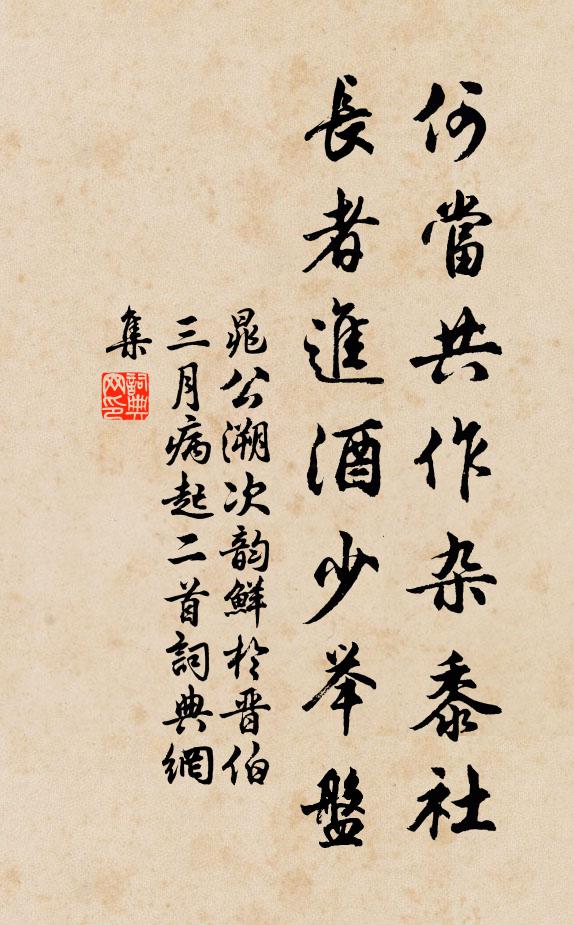 何當共作杂黍社
長者進酒少举盤
晁公溯次韵鮮於晋伯
三月病起二首詞典網
集
詞典網印